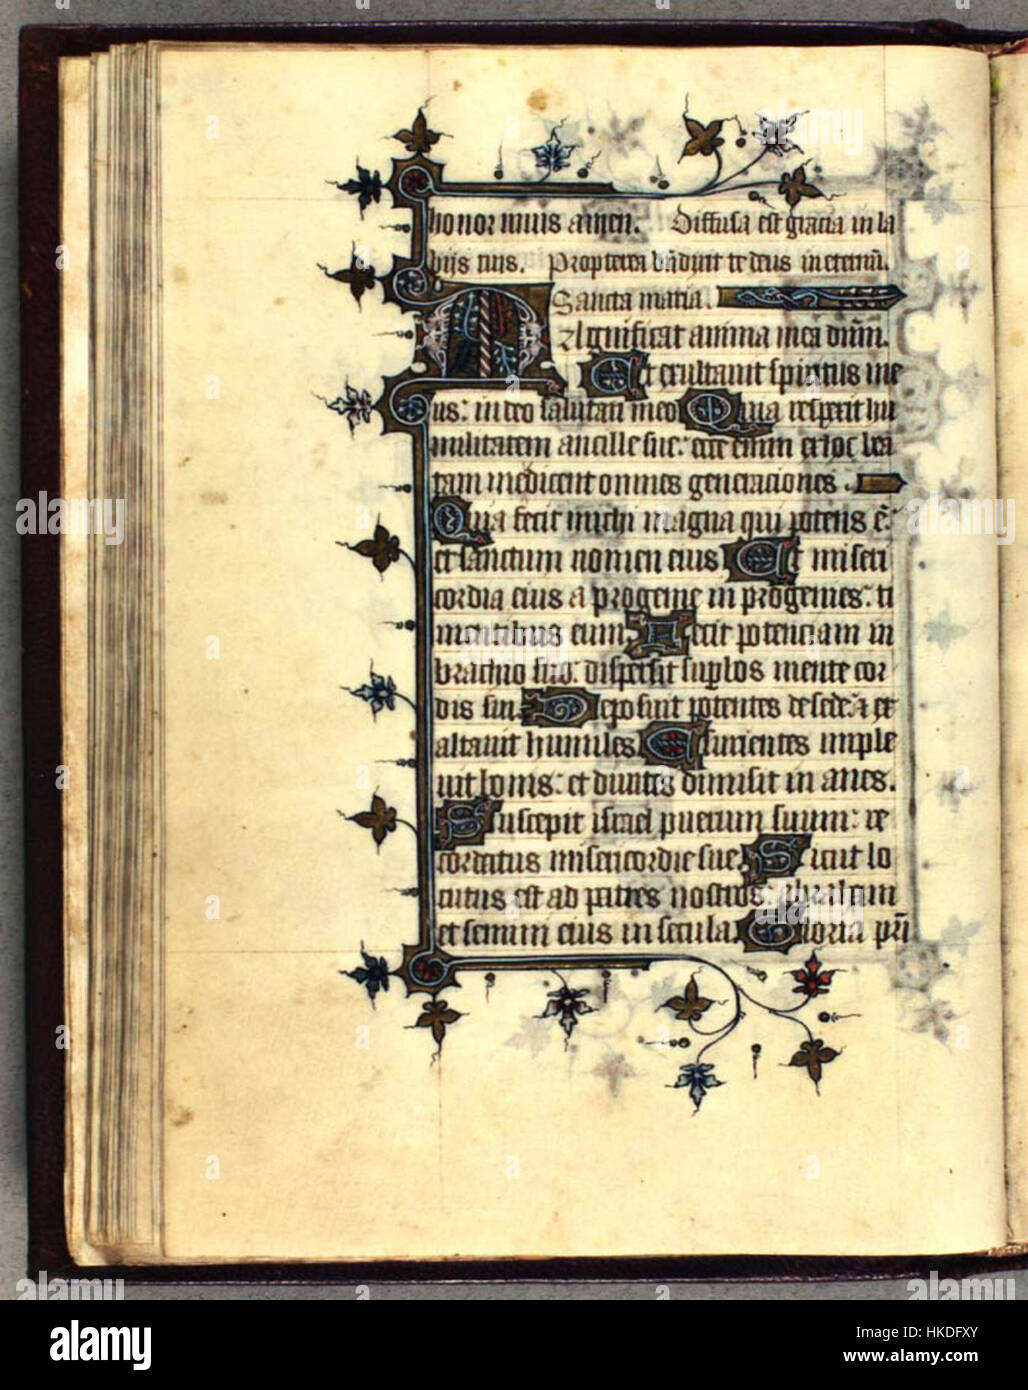 honor virtus amen. Diffusa est gracia in la
bijs tuis. Propterea bn̄dixit te deus in eternū.
Sancta maria.
Magnificat anima mea dnm̄.
Et exultavit spiritus me
us: in deo salutari meo Quia respexit hu
militatem ancille sue: ecce enim ex hoc bea
tam me dicent omnes generaciones.
Quia fecit michi magna qui potens ē:
et sanctum nomen eius Et miseri
cordia eius a progenie in progenies: ti
mentibus eum Fecit potenciam in
brachio suo: dispersit superbos mente cor
dis sui. Deposuit potentes de sede: et ex
altavit humiles. Esurientes imple
vit bonis: et divites dimisit in anes.
Suscepit israel puerum suum: re
cordatus misericordie sue. Sicut lo
cutus est ad patres nostros: abraham
et semini eius in secula. Gloria pr̄i
alamy
Image ID: HKDFXY
www.alamy.com